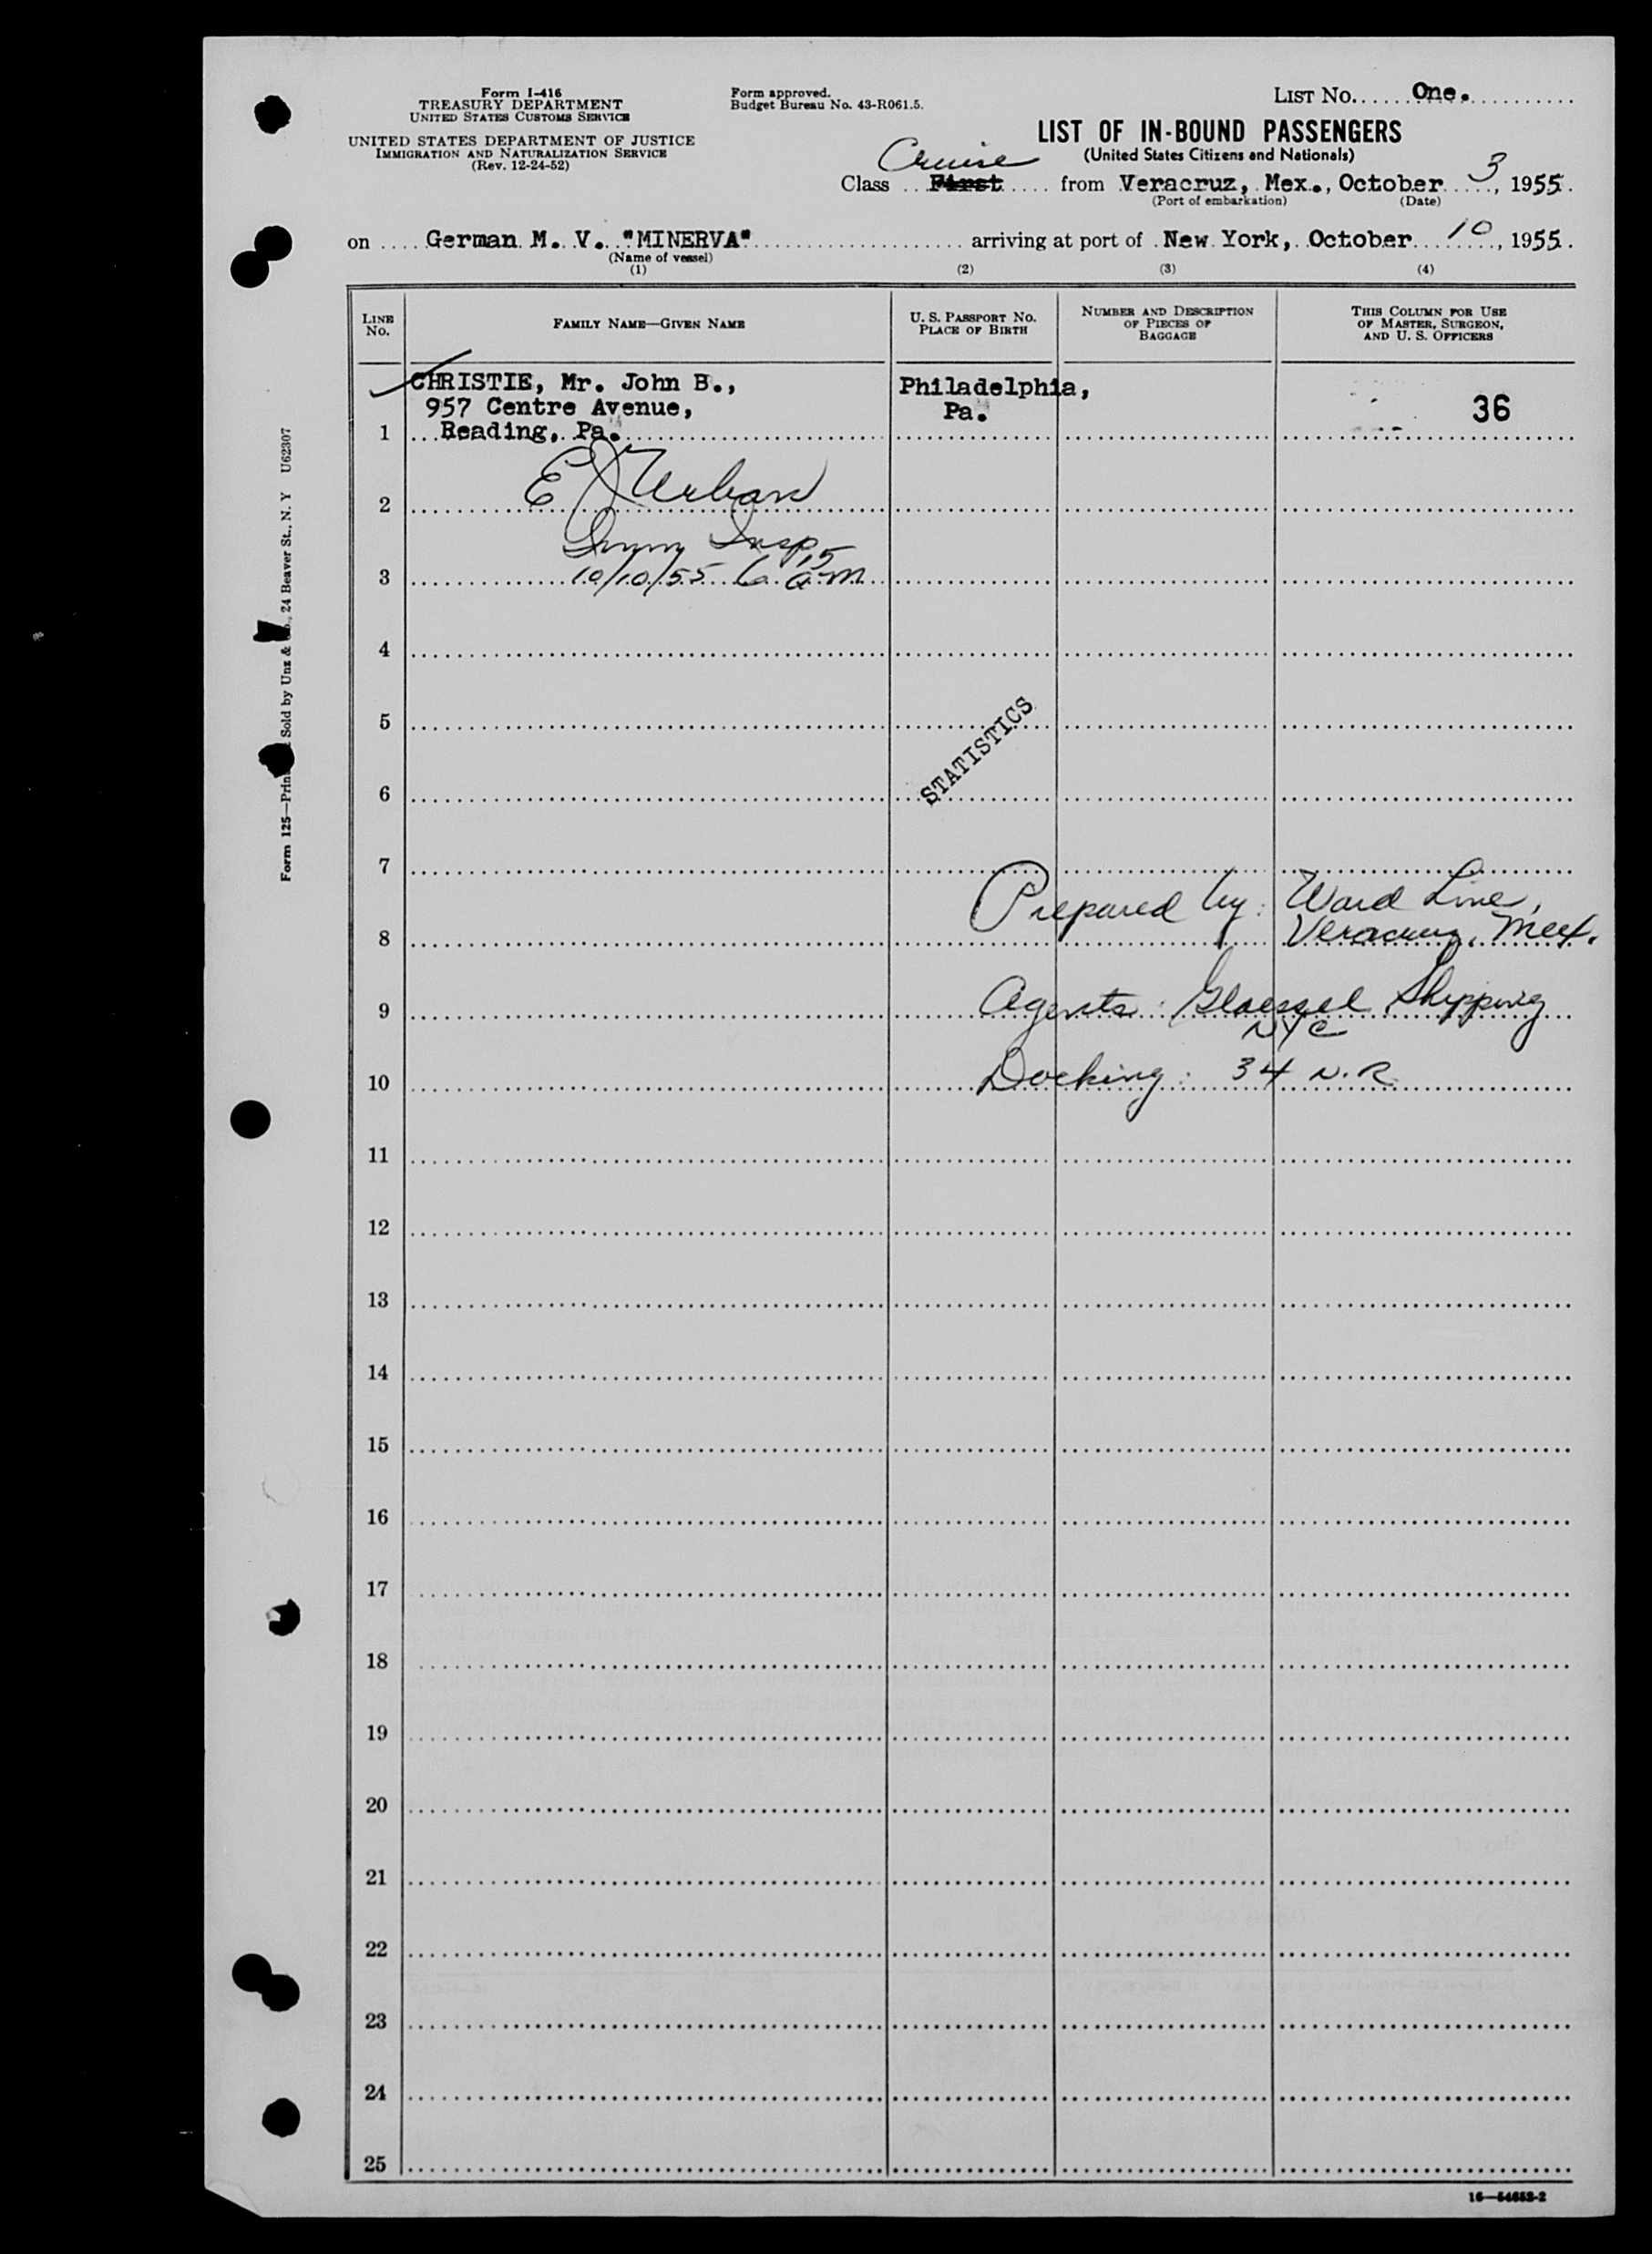 Form I-416
TREASURY DEPARTMENT
UNITED STATES CUSTOMS SERVICE
UNITED STATES DEPARTMENT OF JUSTICE
IMMIGRATION AND NATURALIZATION SERVICE
(Rev. 12-24-52)
Form approved.
Budget Bureau No. 43-R061.5.
LIST No. One.
LIST OF IN-BOUND PASSENGERS
(United States Citizens and Nationals)
Cruise
Class First from Veracruz, Mex., October 3, 1955.
(Port of embarkation) (Date)
on German M. V. "MINERVA" arriving at port of New York, October 10, 1955.
(Name of vessel)
(1) (2) (3) (4)
LINE No.
FAMILY NAME—GIVEN NAME
U. S. PASSPORT NO.
PLACE OF BIRTH
NUMBER AND DESCRIPTION
OF PIECES OF
BAGGAGE
THIS COLUMN FOR USE
OF MASTER, SURGEON,
AND U. S. OFFICERS
CHRISTIE, Mr. John B., Philadelphia,
957 Centre Avenue, Pa. 36
1 Reading, Pa.
E J Urban
2
Imm Insp
3 10/10/55 6 15 a-m
4
5
STATISTICS
6
7
Prepared by: Ward Line,
8 Veracruz, Mex.
9 Agents: Glaessel Shipping
NYC
10 Docking: 34 N.R.
11
12
13
14
15
16
17
18
19
20
21
22
23
24
25
16—54652-2
Sold by Unz &
24 Beaver St., N. Y U62307
Form 125